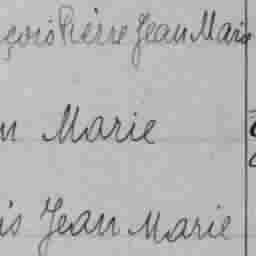 çois Pierre Jean Marie
n Marie
is Jean Marie